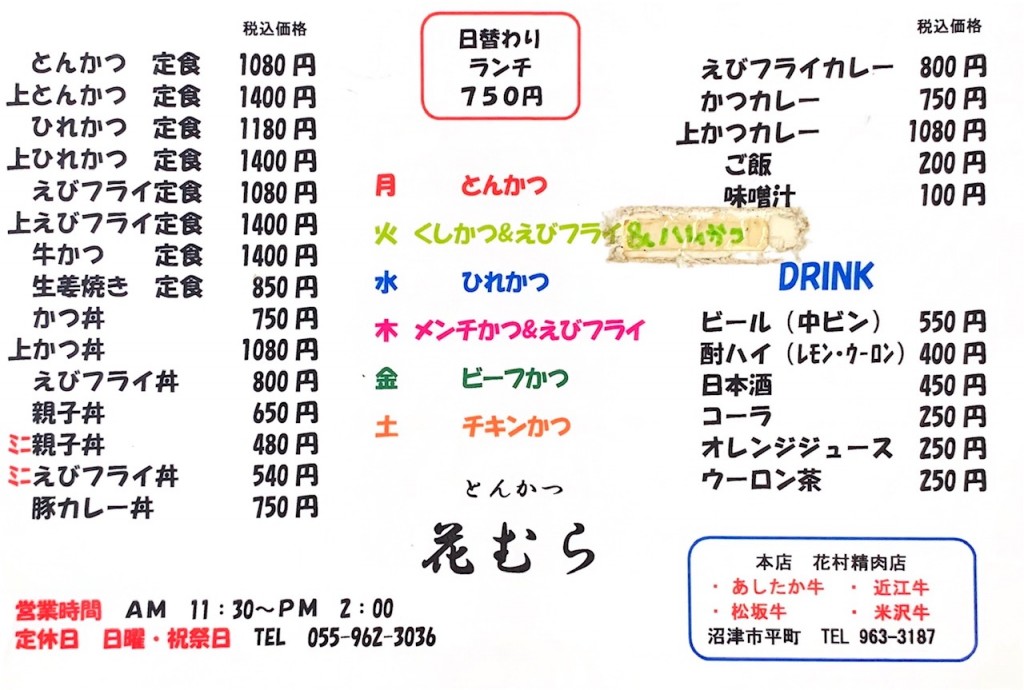 税込価格
とんかつ 定食 1080 円
上とんかつ 定食 1400 円
ひれかつ 定食 1180 円
上ひれかつ 定食 1400 円
えびフライ定食 1080 円
上えびフライ定食 1400 円
牛かつ 定食 1400 円
生姜焼き 定食 850 円
かつ丼 750 円
上かつ丼 1080 円
えびフライ丼 800 円
親子丼 650 円
ミニ親子丼 480 円
ミニえびフライ丼 540 円
豚カレー丼 750 円
日替わり
ランチ
７５０円
月 とんかつ
火 くしかつ&えびフライ
水 ひれかつ
木 メンチかつ&えびフライ
金 ビーフかつ
土 チキンかつ
とんかつ
花むら
税込価格
えびフライカレー 800 円
かつカレー 750 円
上かつカレー 1080 円
ご飯 200 円
味噌汁 100 円
DRINK
ビール（中ビン） 550 円
酎ハイ（ﾚﾓﾝ・ｳｰﾛﾝ） 400 円
日本酒 450 円
コーラ 250 円
オレンジジュース 250 円
ウーロン茶 250 円
営業時間 ＡＭ 11：30～ＰＭ 2：00
定休日 日曜・祝祭日 TEL 055-962-3036
本店 花村精肉店
・あしたか牛 ・近江牛
・松坂牛 ・米沢牛
沼津市平町 TEL 963-3187